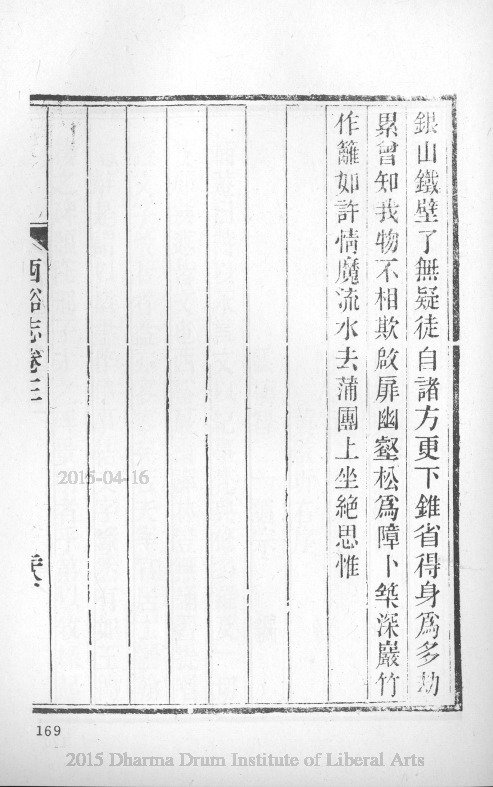 銀山鐵壁了無疑徒自諸方更下錐省得身爲多劫
累曾知我物不相欺啟扉幽壑松爲障卜築深巖竹
作籬如許情魔流水去蒲團上坐絶思惟
西谿志卷三
2015-04-16
169
2015 Dharma Drum Institute of Liberal Arts